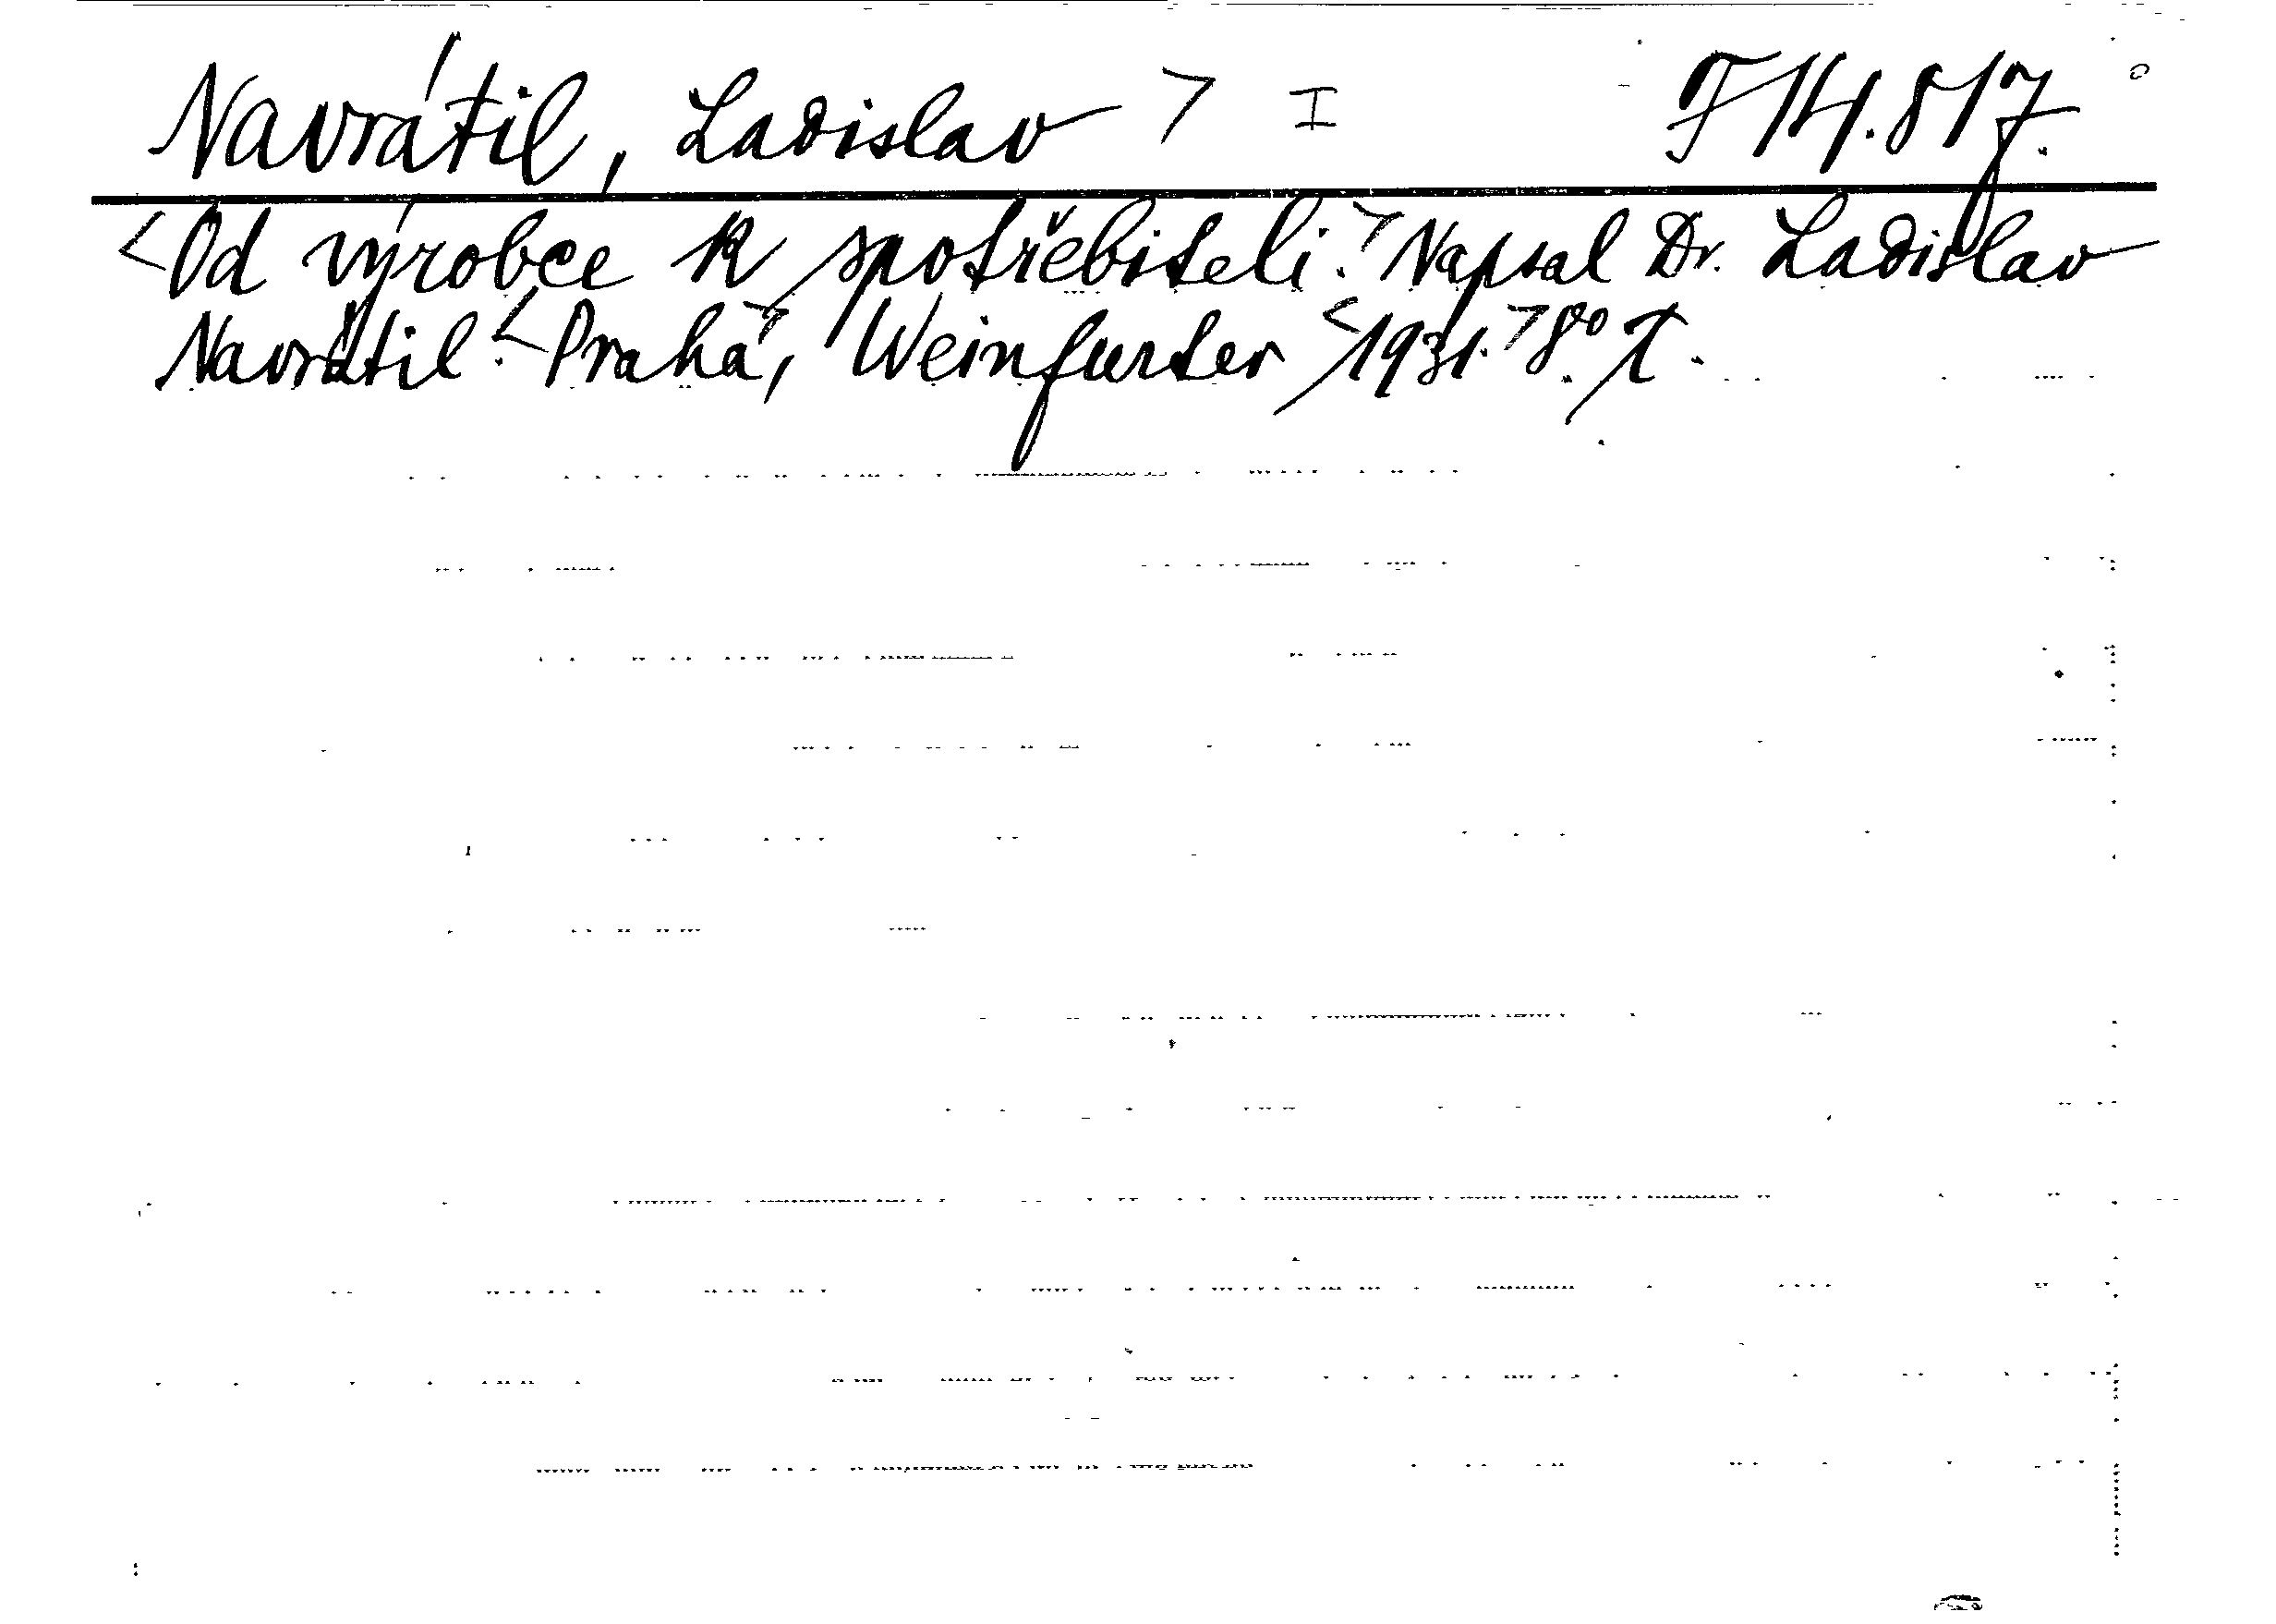 Navrátil, Ladislav > I F 14.817.
<Od výrobce k spotřebiteli.> Napsal Dr. Ladislav
Navrátil. <Praha>, Weinfurter <1931.> 8° T.